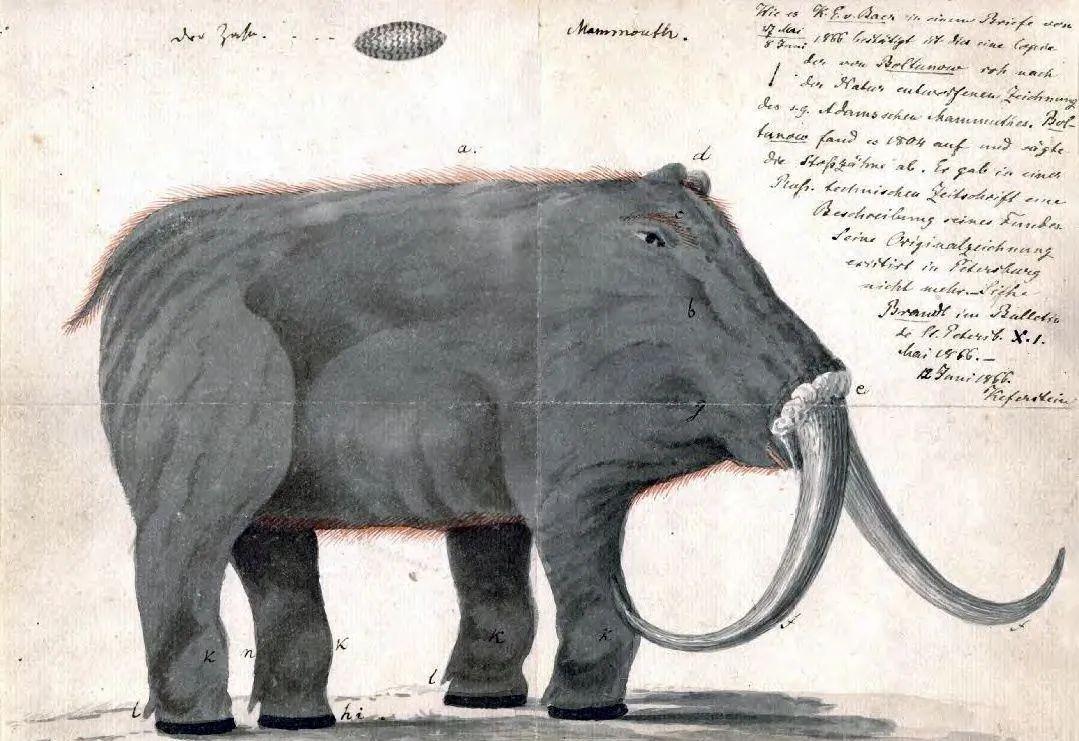 Der Zahn. . - - .
Mammouth.
Wie es K. E. v. Baer in einem Briefe von
27 Mai
8 Juni 1866 bestätigt ist dies eine Copie
der von Boltunow roh nach
der Natur entworfenen Zeichnung
des s.g. Adamsschen Mammuthes. Bol-
tunow fand es 1804 auf und sägte
die Stoßzähne ab. Er gab in einer
Russ. technischen Zeitschrift eine
Beschreibung seines Fundes.
Seine Originalzeichnung
existirt in Petersburg
nicht mehr. Siehe
Brandt im Bulletin
de St. Petersb. X. 1.
Mai 1866. —
12 Juni 1866.
Keferstein
a.
d
c
b
e
g
f
f
k
n
k
k
k
l
l
h i .